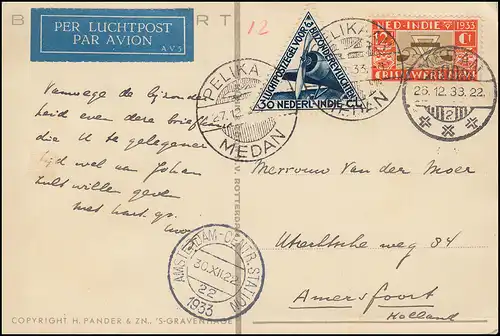 B
PER LUCHTPOST
PAR AVION
A.V.5
12
LUCHTPOSTZEGEL VOOR BIJZONDERE VLUCHTEN
30 NEDERL-INDIE CT.
NED-INDIE 1933
Ct
CRISISWERK
PELIKA
27.12
MEDAN
PELIKA
26.12.33.22
2
Vanwege de
heid even dere
die U te gelegener
tijd wel aan Johan
zult willen geven
met hart. gr.
V. ROTTERD
Mevrouw van der Moer
Utrechtsche weg 84
Amersfoort
Holland
AMSTERDAM-CENTR. STATION
30.XII.22
22
1933
COPYRIGHT H. PANDER & ZN., 'S-GRAVENHAGE